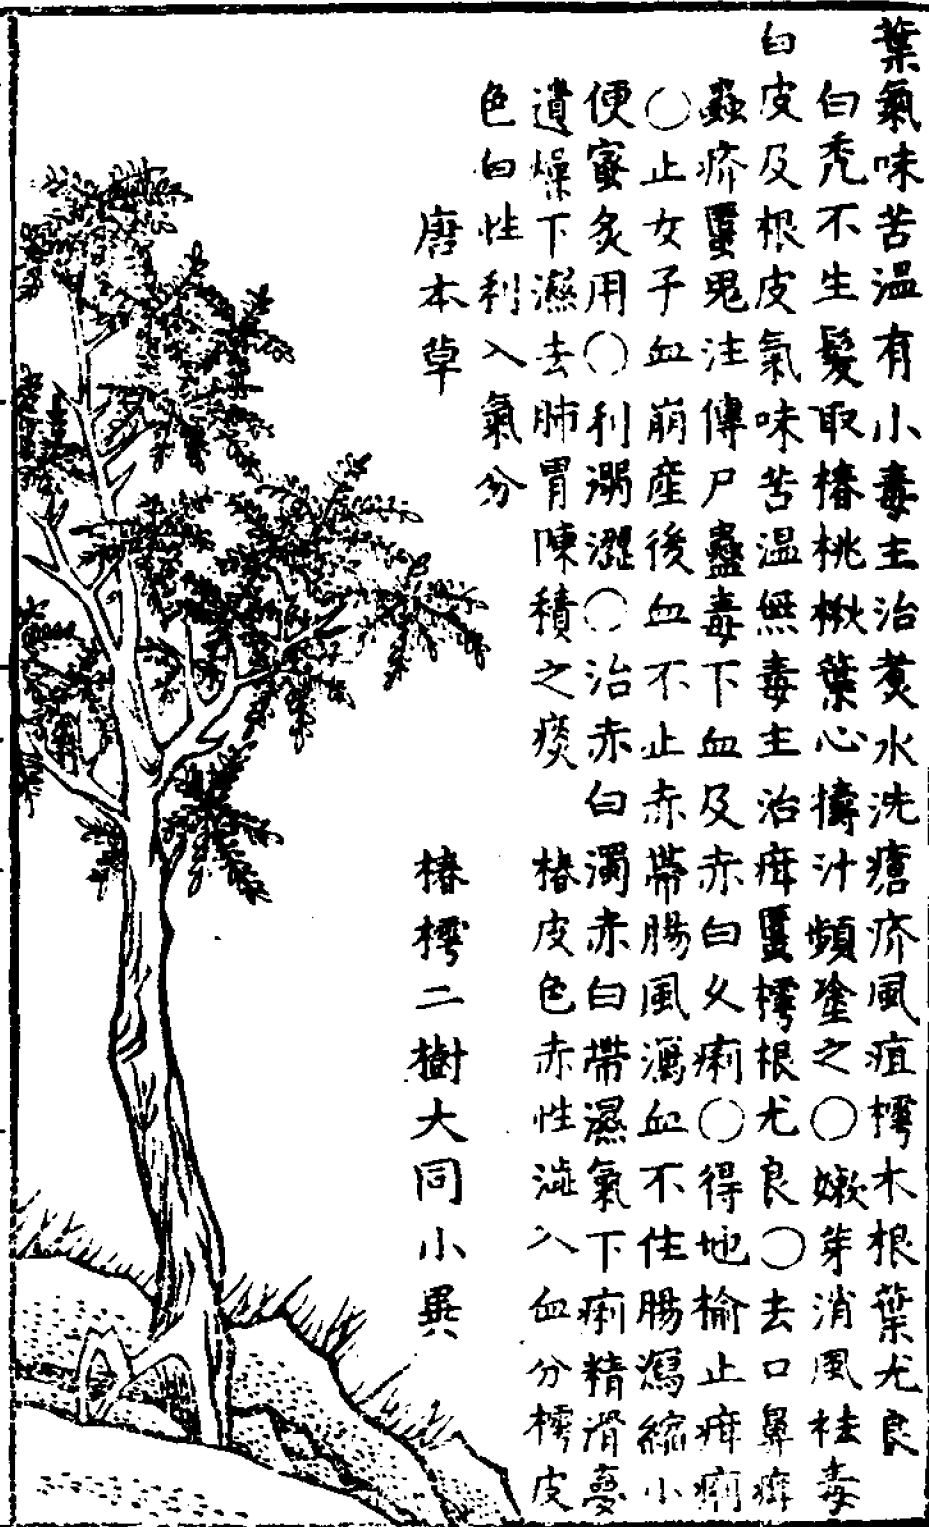 葉氣味苦温有小毒主治煑水洗瘡疥風疽樗木根葉尤良
白禿不生髮取椿桃楸葉心擣汁頻塗之〇嫩芽消風祛毒
白皮及根皮氣味苦温無毒主治疳䘌樗根尤良〇去口鼻疳
蟲疥䘌鬼注傳尸蠱毒下血及赤白久痢〇得地榆止疳痢
〇止女子血崩産後血不止赤帶腸風瀉血不住腸瀉縮小
便蜜炙用〇利溺澀〇治赤白濁赤白帶濕氣下痢精滑夢
遺燥下濕去肺胃陳積之痰　椿皮色赤性澁入血分樗皮
色白性利入氣分
唐本草　椿樗二樹大同小異